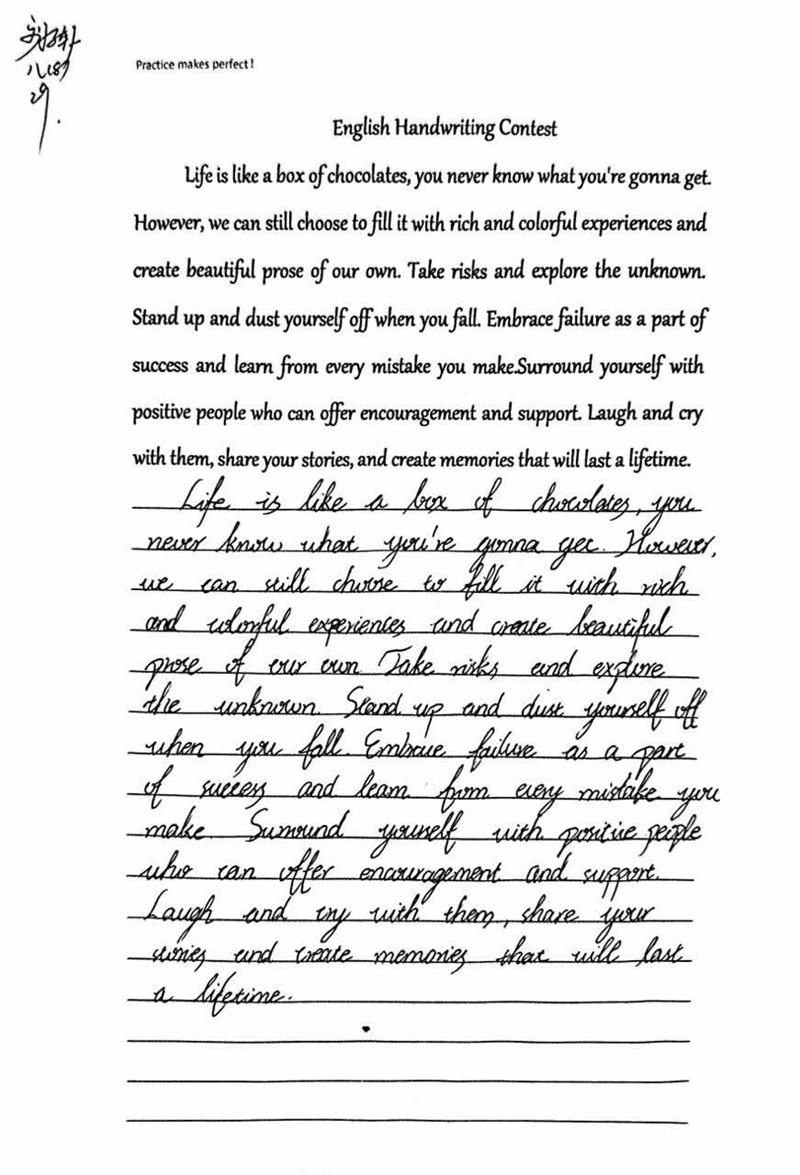 八(8)
29.
Practice makes perfect!
English Handwriting Contest
Life is like a box of chocolates, you never know what you're gonna get.
However, we can still choose to fill it with rich and colorful experiences and
create beautiful prose of our own. Take risks and explore the unknown.
Stand up and dust yourself off when you fall. Embrace failure as a part of
success and learn from every mistake you make.Surround yourself with
positive people who can offer encouragement and support. Laugh and cry
with them, share your stories, and create memories that will last a lifetime.
Life is like a box of chocolates, you
never know what you're gonna get. However,
we can still choose to fill it with rich
and colorful experiences and create beautiful
prose of our own. Take risks and explore
the unknown. Stand up and dust yourself off
when you fall. Embrace failure as a part
of success and learn from every mistake you
make. Surround yourself with positive people
who can offer encouragement and support.
Laugh and cry with them, share your
stories and create memories that will last
a lifetime.